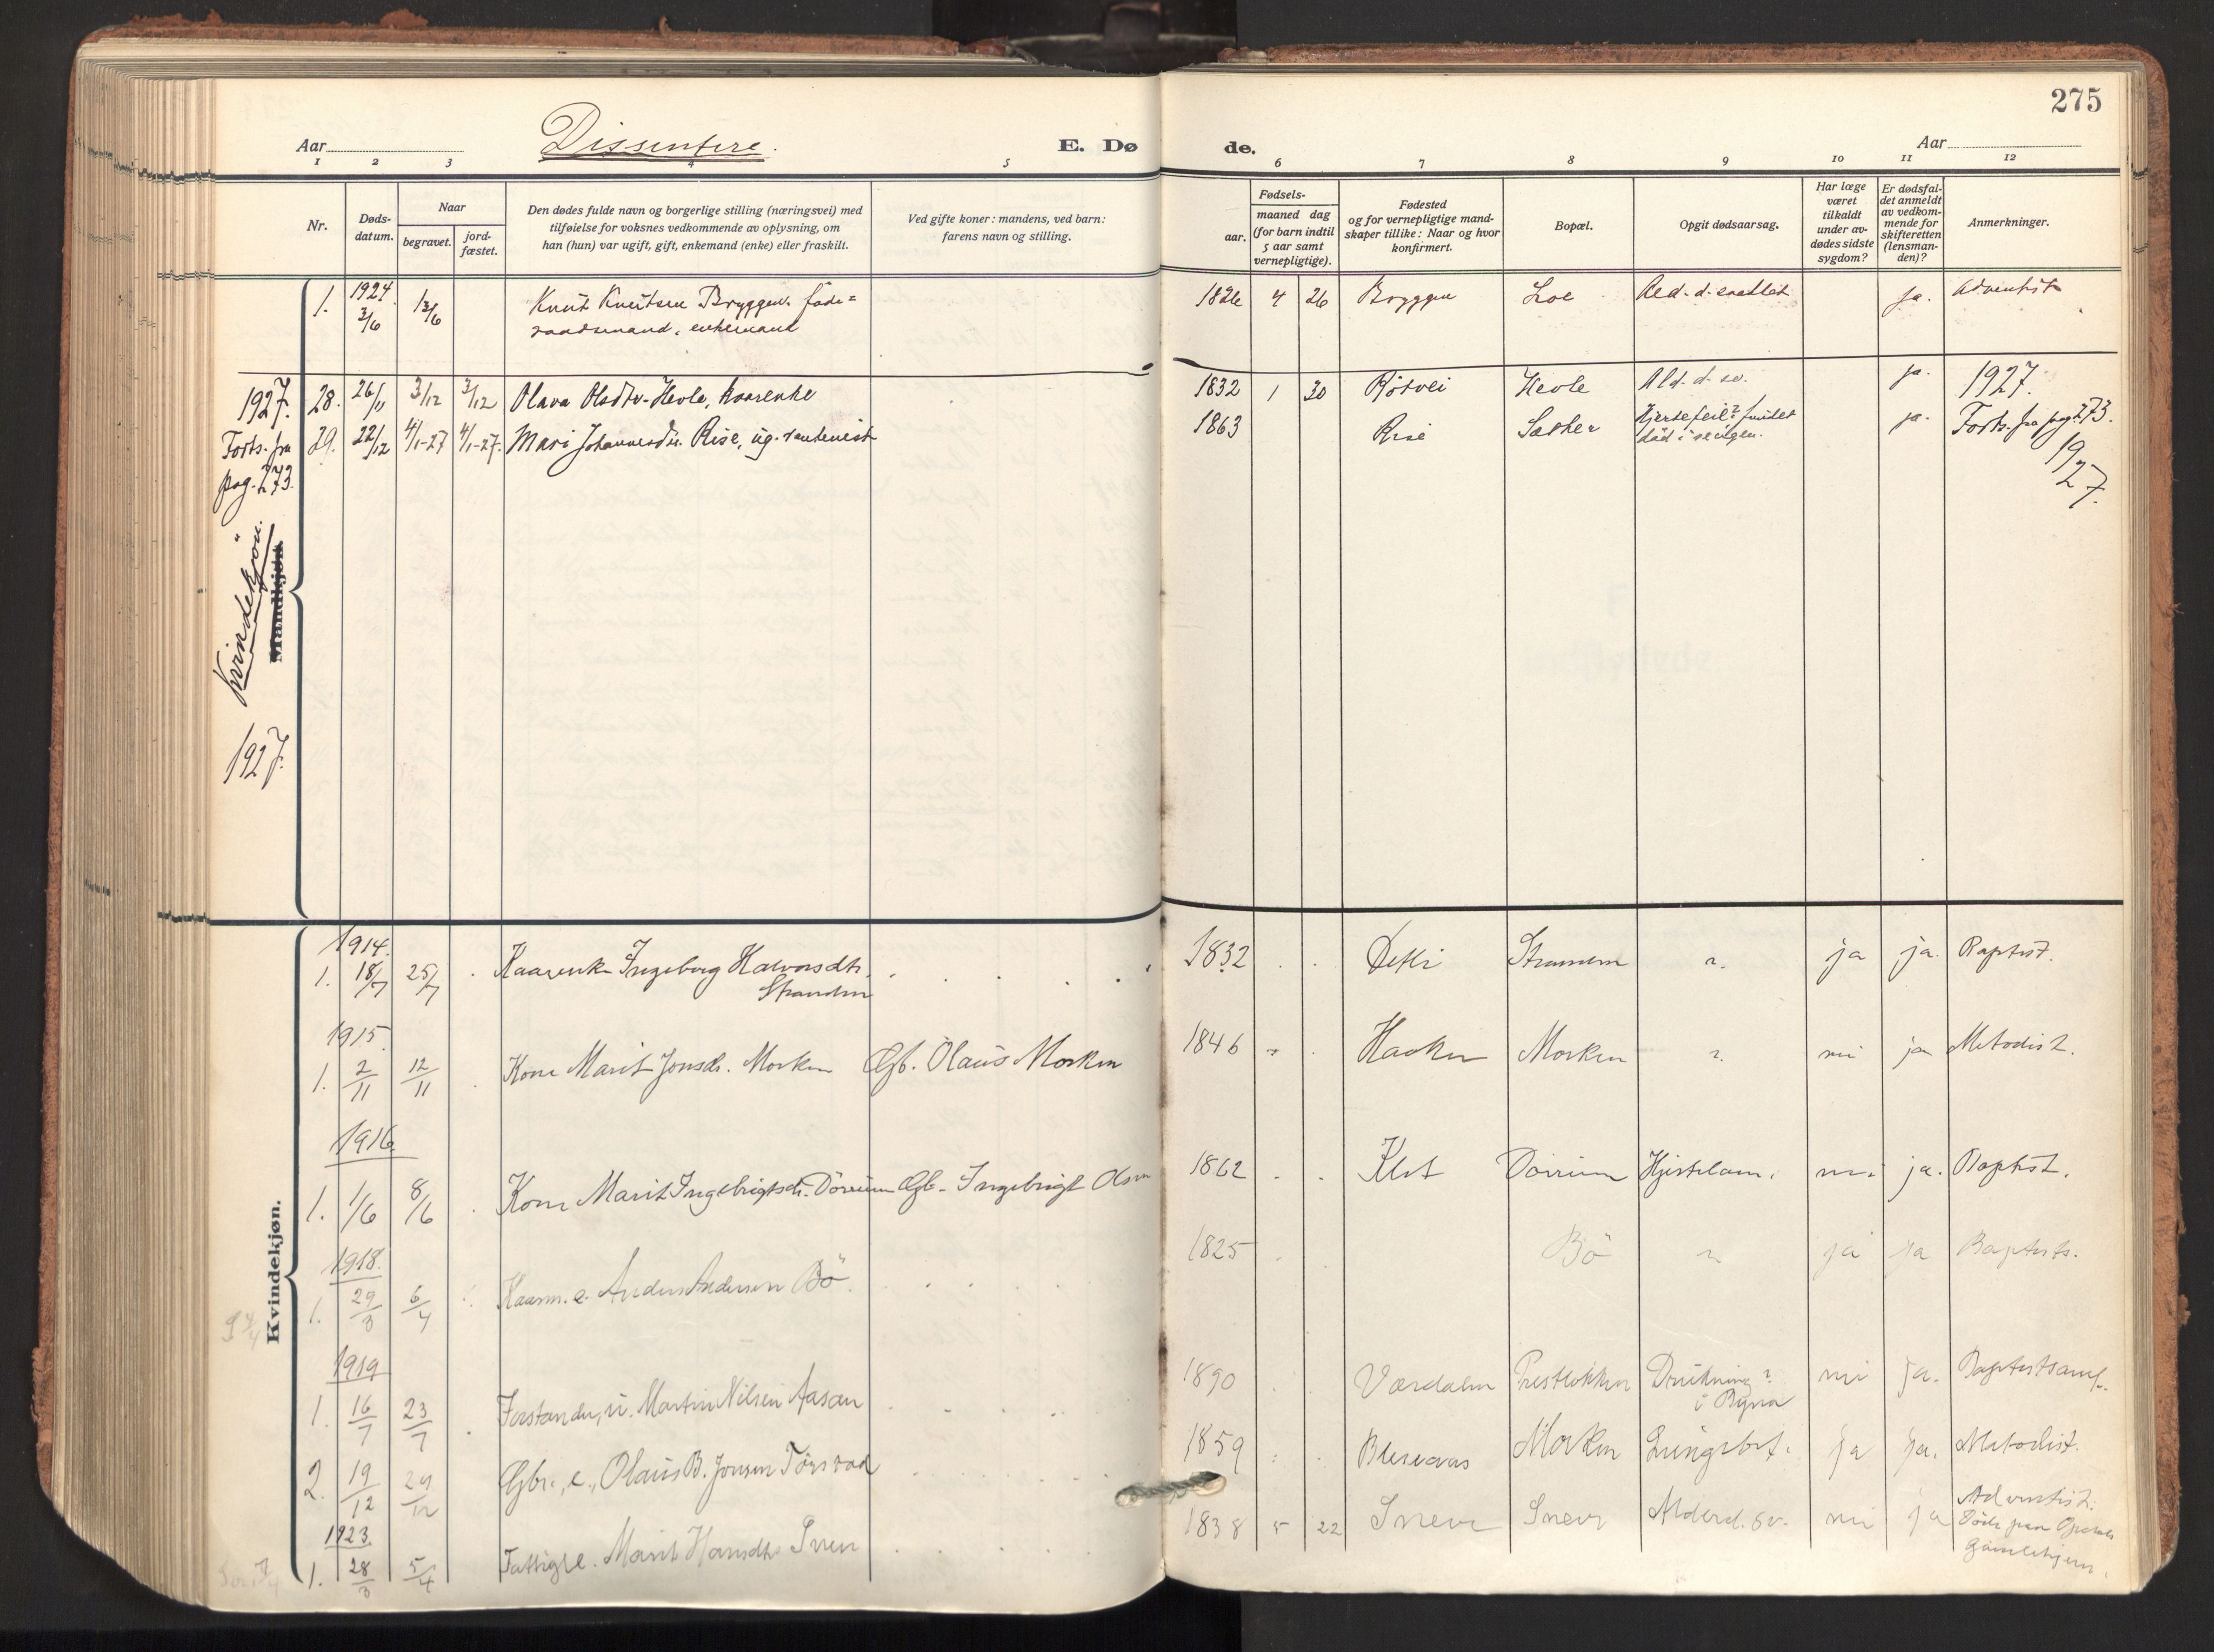 275
Aar
Dissentere.
E. Dø
de.
Aar
1 2 3 4 5 6 7 8 9 10 11 12
Nr.
Døds-
datum.
Naar
begravet.
jord-
fæstet.
Den dødes fulde navn og borgerlige stilling (næringsvei) med
tilføielse for voksnes vedkommende av oplysning, om
han (hun) var ugift, gift, enkemand (enke) eller fraskilt.
Ved gifte koner: mandens, ved barn:
farens navn og stilling.
Fødsels-
aar.
maaned dag
(for barn indtil
5 aar samt
vernepligtige).
Fødested
og for vernepligtige mand-
skaper tillike: Naar og hvor
konfirmert.
Bopæl.
Opgit dødsaarsag.
Har læge
været
tilkaldt
under av-
dødes sidste
sygdom?
Er dødsfal-
det anmeldt
av vedkom-
mende for
skifteretten
(lensman-
den)?
Anmerkninger.
1924
1. 3/6 13/6 Knut Knutsen Bryggen. føde=
raadsmand, enkemand
1826 4 26 Bryggen Loe ja. Adventist
1927. 28. 26/11 3/12 3/12 Olava Olsdtr. Hevle, kaarenke
1832 1 30 Hevle Ald. d. sv. ja. 1927.
Forts. fra
pag. 273.
29. 22/12 4/1-27 4/1-27. Mari Johannesdtr. Rise, ug.
1863 Rise Sæther Hjertefeil? fundet
død i sengen.
ja. Forts. fra pag. 273.
1927.
Kvindekjøn.
Mandkjøn.
1927.
Kvindekjøn.
1914.
1. 18/7 25/7 Kaarenke Ingeborg Halvorsdtr.
Stranden
1832 Stranden ja ja. Baptist.
1915.
1. 2/11 12/11 Kone Marit Jonsdr. Morken Gb. Olaus Morken
1846 Haoken Morken nei ja Metodist.
1916.
1. 1/6 8/6 Kone Marit Ingebrigtsdr. Dörrum Gb. Ingebrigt Olsen
1862 Klet Dörrum Hjertelam. nei ja. Baptist.
1918.
1. 29/3 6/4 Kaarm. e. Anders Andersen Bö.
1825 Bö ja ja Baptists.
1919
1. 16/7 23/7 Forstander, u. Martin Nilsen Aasan
1890 Værdalen Drukning?
i Byna
nei ja. Baptistsamf.
2. 19/12 29/12 Gbr., e., Olaus B. Jonsen
1859 Morken Lungebet. ja ja. Metodist.
1923.
1. 28/3 5/4 Fattigl e. Marit Hansdtr. Sneve
1838 5 22 Sneve Sneve Alderd. sv. nei ja Adventist.
Döde paa Opdal
Gamlehjem.